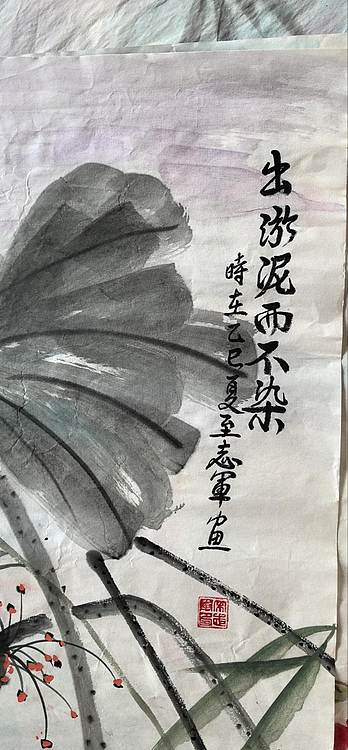 出淤泥而不染
時在乙巳夏至志軍画